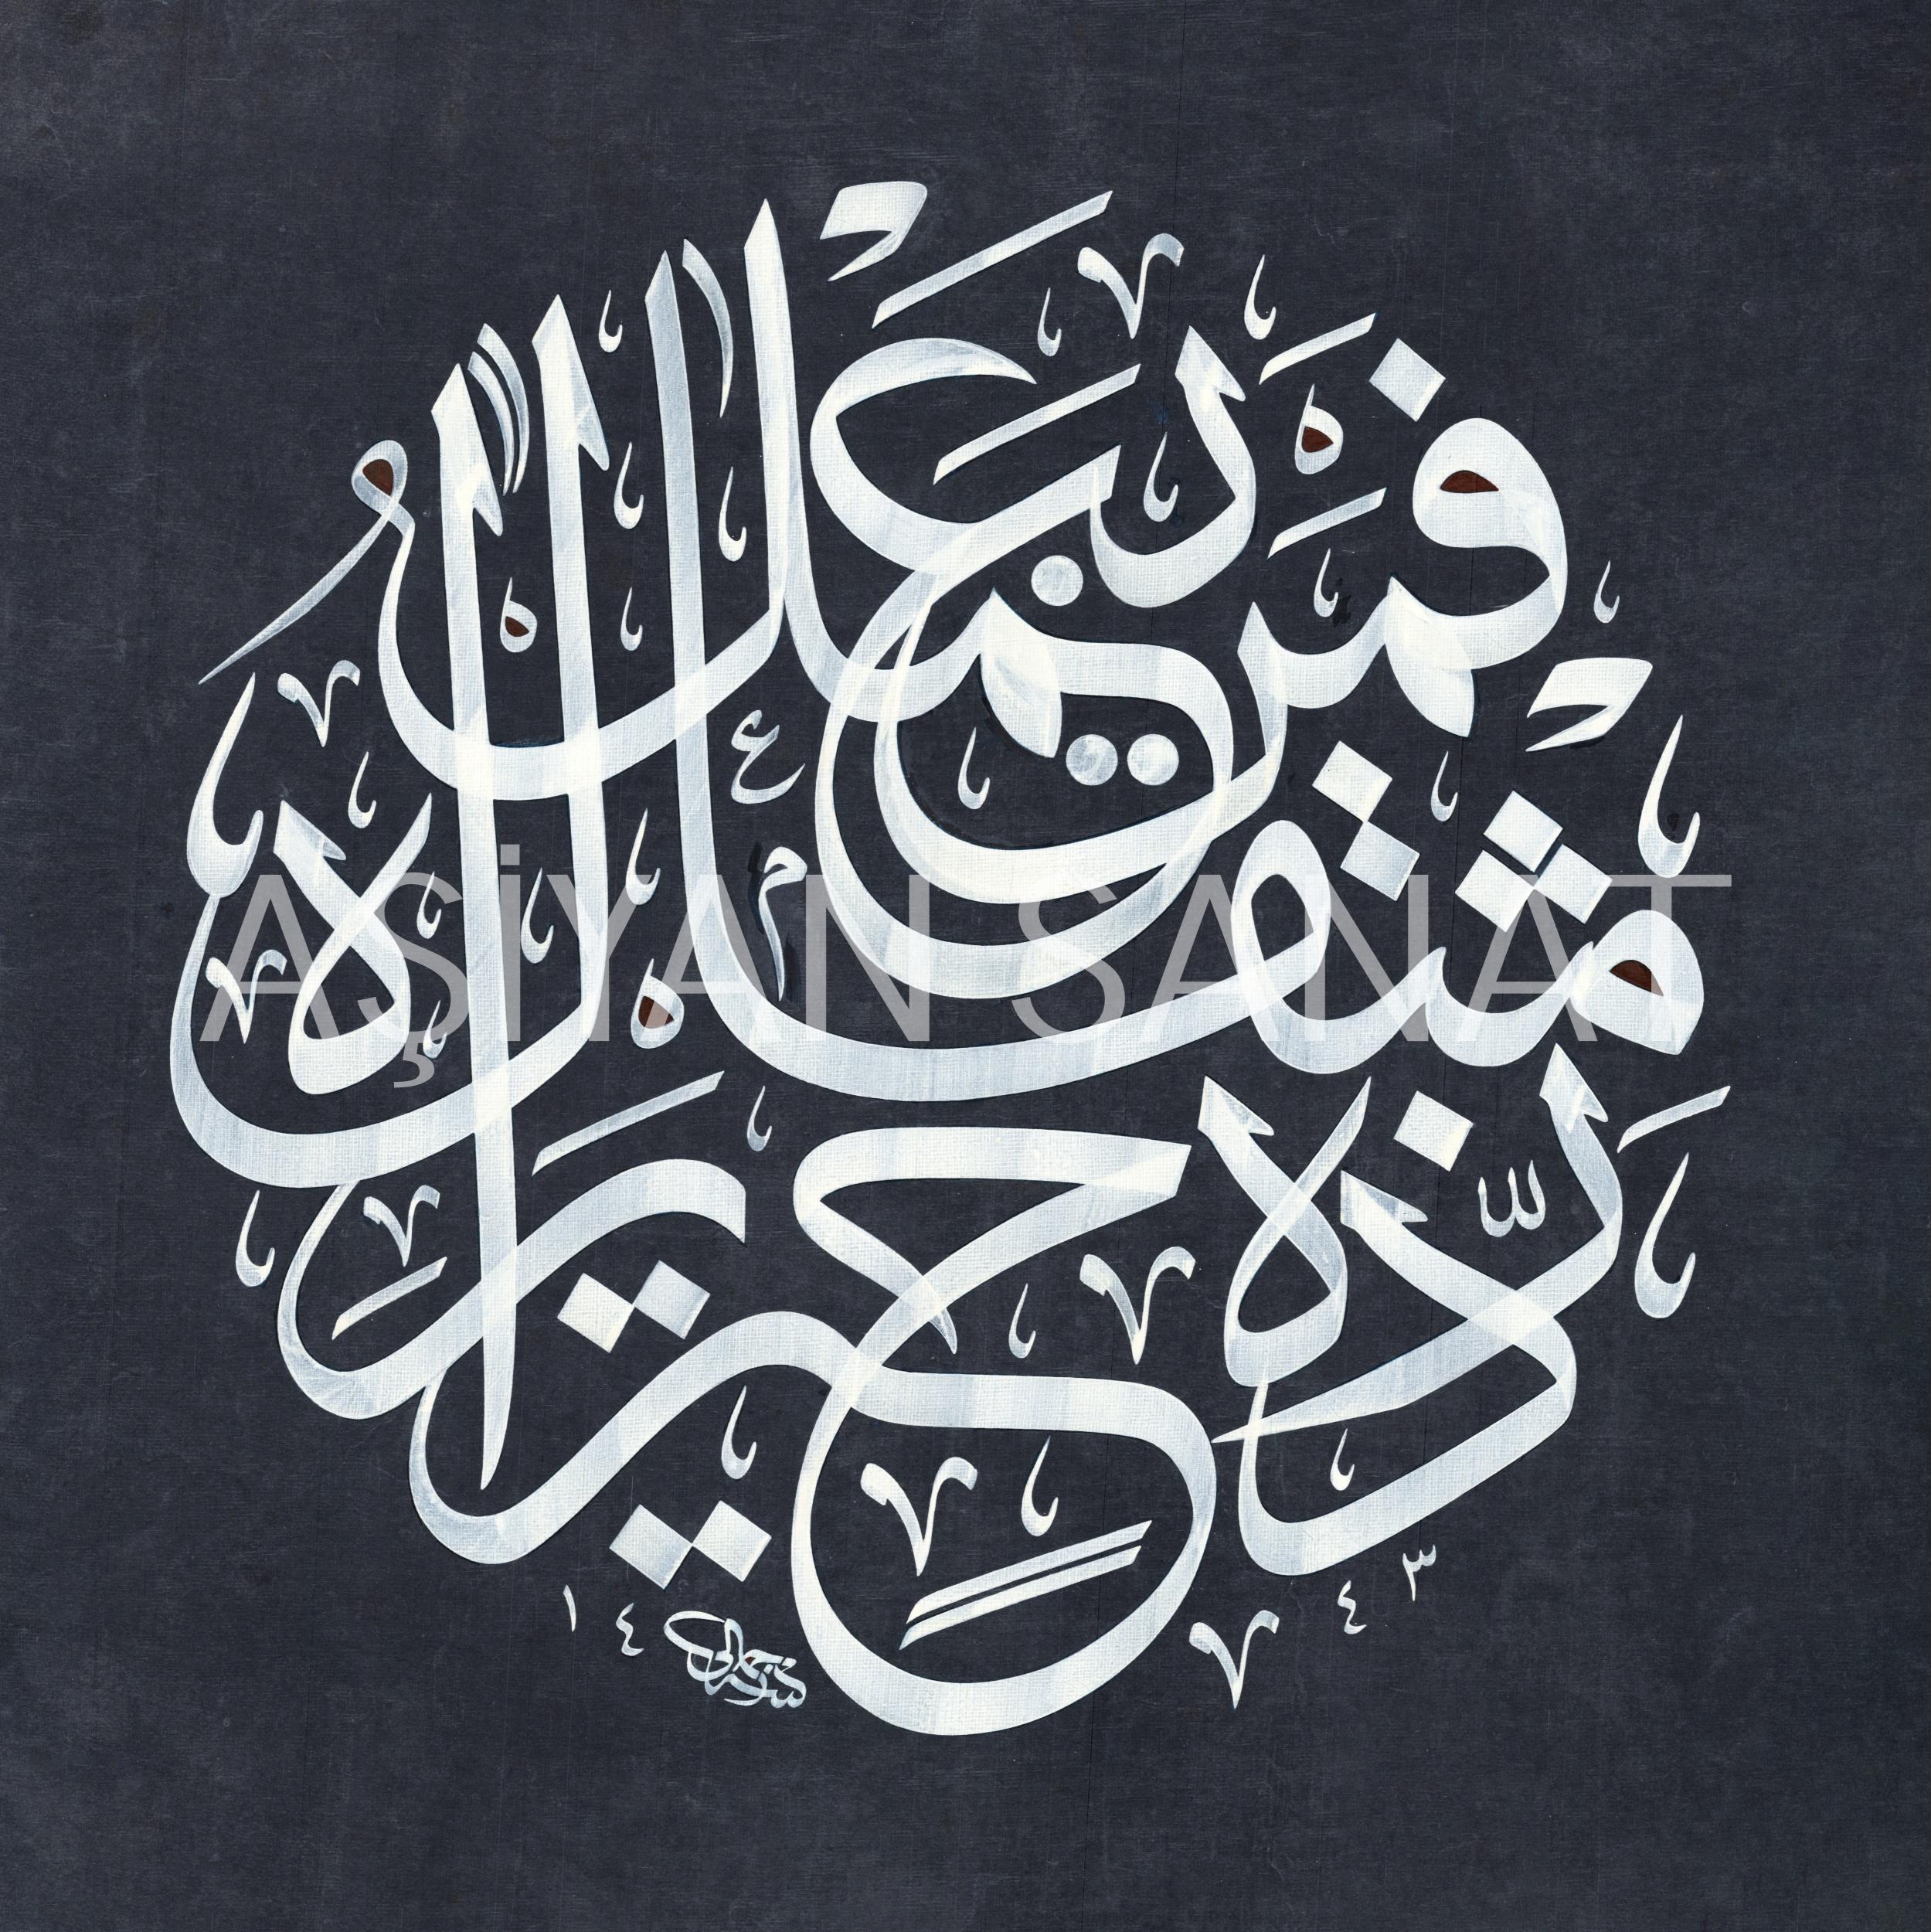 فَمَنْ يَعْمَلْ
مِثْقَالَ
ذَرَّةٍ خَيْرًا يَرَهُ
AŞİYAN SANAT
١٤٤٣